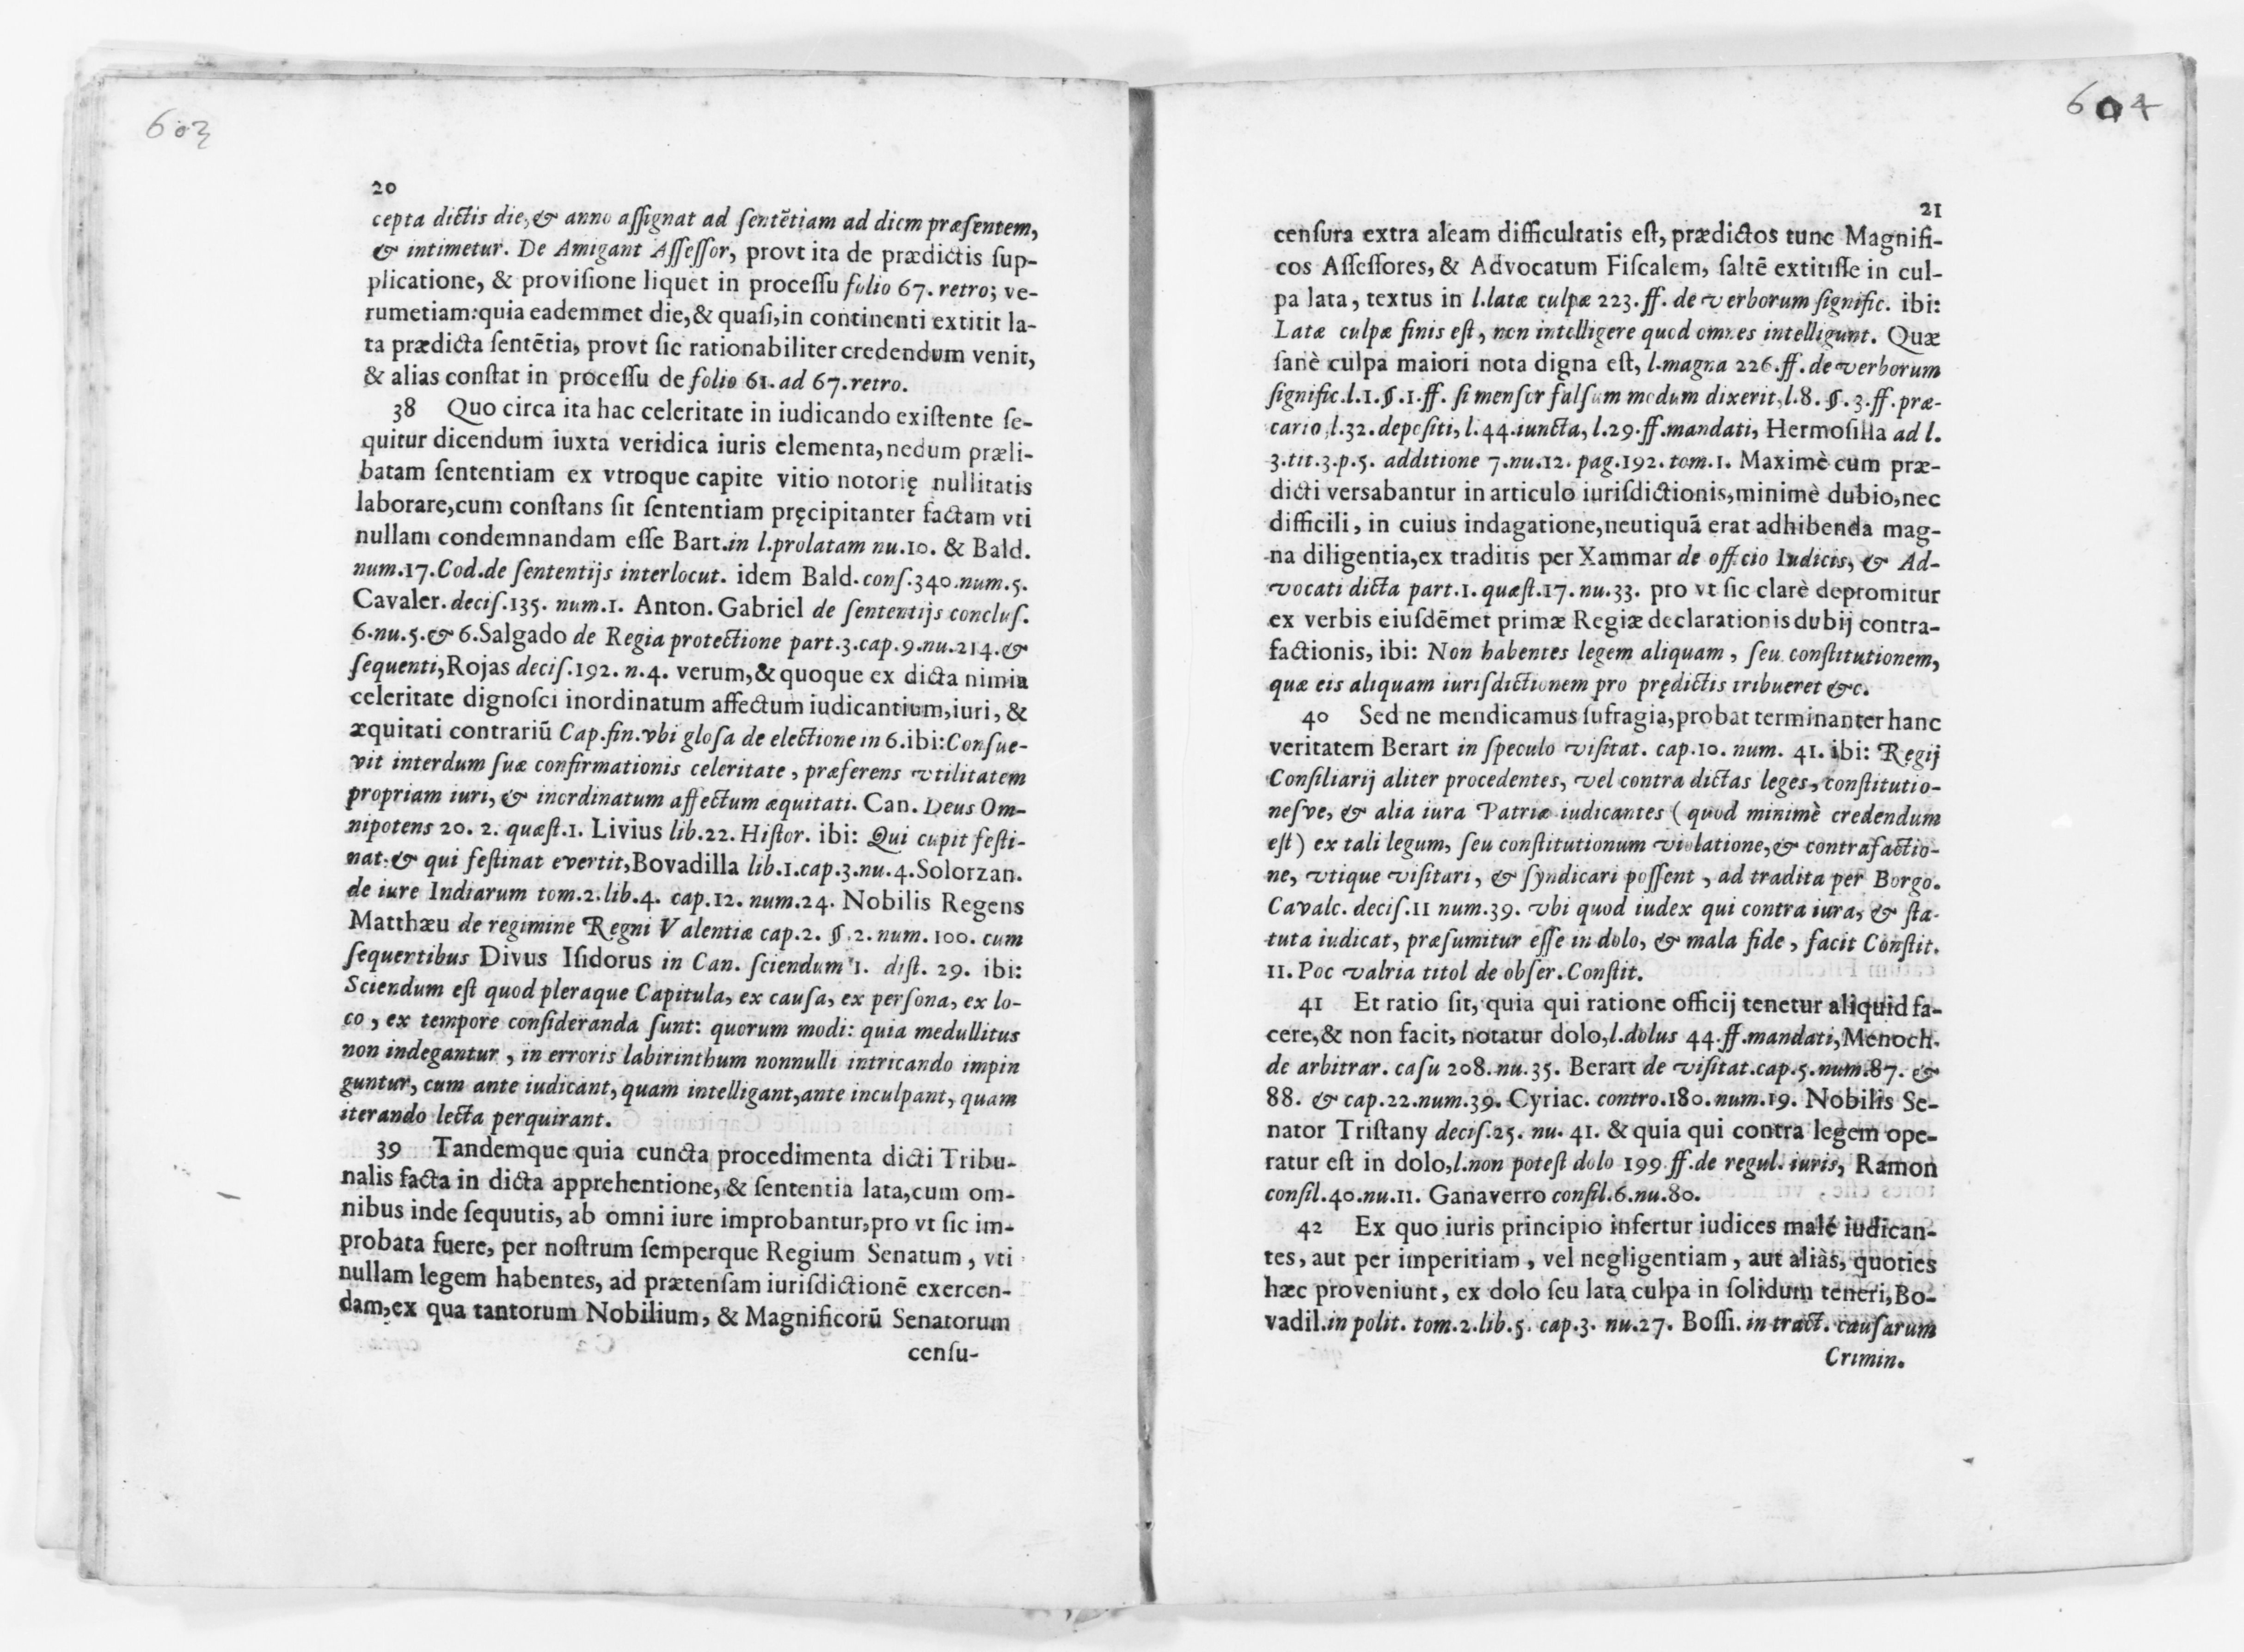 603
20
cepta dictis die, & anno aſſignat ad ſentẽtiam ad diem præſentem,
& intimetur. De Amigant Aſſeſſor, provt ita de prædictis ſup-
plicatione, & proviſione liquet in proceſſu folio 67. retro; ve-
rumetiam: quia eademmet die, & quaſi, in continenti extitit la-
ta prædicta ſentẽtia, provt ſic rationabiliter credendum venit,
& alias conſtat in proceſſu de folio 61. ad 67. retro.
38 Quo circa ita hac celeritate in iudicando exiſtente ſe-
quitur dicendum iuxta veridica iuris elementa, nedum præli-
batam ſententiam ex vtroque capite vitio notorię nullitatis
laborare, cum conſtans ſit ſententiam pręcipitanter factam vti
nullam condemnandam eſſe Bart. in l. prolatam nu. 10. & Bald.
num. 17. Cod. de ſententijs interlocut. idem Bald. conſ. 340. num. 5.
Cavaler. deciſ. 135. num. 1. Anton. Gabriel de ſententijs concluſ.
6. nu. 5. & 6. Salgado de Regia protectione part. 3. cap. 9. nu. 214. &
ſequenti, Rojas deciſ. 192. n. 4. verum, & quoque ex dicta nimia
celeritate dignoſci inordinatum affectum iudicantium, iuri, &
æquitati contrariũ Cap. fin. vbi gloſa de electione in 6. ibi: Conſue-
vit interdum ſuæ confirmationis celeritate, præferens vtilitatem
propriam iuri, & inordinatum affectum æquitati. Can. Deus Om-
nipotens 20. 2. quæſt. 1. Livius lib. 22. Hiſtor. ibi: Qui cupit feſti-
nat. & qui feſtinat evertit, Bovadilla lib. 1. cap. 3. nu. 4. Solorzan.
de iure Indiarum tom. 2. lib. 4. cap. 12. num. 24. Nobilis Regens
Matthæu de regimine Regni Valentiæ cap. 2. §. 2. num. 100. cum
ſequentibus Divus Iſidorus in Can. ſciendum 1. diſt. 29. ibi:
Sciendum eſt quod pleraque Capitula, ex cauſa, ex perſona, ex lo-
co, ex tempore conſideranda ſunt: quorum modi: quia medullitus
non indegantur, in erroris labirinthum nonnulli intricando impin
guntur, cum ante iudicant, quam intelligant, ante inculpant, quam
iterando lecta perquirant.
39 Tandemque quia cuncta procedimenta dicti Tribu-
nalis facta in dicta apprehentione, & ſententia lata, cum om-
nibus inde ſequutis, ab omni iure improbantur, pro vt ſic im-
probata fuere, per noſtrum ſemperque Regium Senatum, vti
nullam legem habentes, ad prætenſam iuriſdictionẽ exercen-
dam, ex qua tantorum Nobilium, & Magnificorũ Senatorum
cenſu-
604
21
cenſura extra aleam difficultatis eſt, prædictos tunc Magnifi-
cos Aſſeſſores, & Advocatum Fiſcalem, ſaltẽ extitiſſe in cul-
pa lata, textus in l. latæ culpæ 223. ff. de verborum ſignific. ibi:
Latæ culpæ finis eſt, non intelligere quod omnes intelligunt. Quæ
ſanè culpa maiori nota digna eſt, l. magna 226. ff. de verborum
ſignific. l. 1. §. 1. ff. ſi menſor falſum modum dixerit, l. 8. §. 3. ff. præ-
cario, l. 32. depoſiti, l. 44. iuncta, l. 29. ff. mandati, Hermoſilla ad l.
3. tit. 3. p. 5. additione 7. nu. 12. pag. 192. tom. 1. Maximè cum præ-
dicti verſabantur in articulo iuriſdictionis, minimè dubio, nec
difficili, in cuius indagatione, neutiquã erat adhibenda mag-
na diligentia, ex traditis per Xammar de officio Iudicis, & Ad-
vocati dicta part. 1. quæſt. 17. nu. 33. pro vt ſic clarè depromitur
ex verbis eiuſdẽmet primæ Regiæ declarationis dubij contra-
factionis, ibi: Non habentes legem aliquam, ſeu conſtitutionem,
quæ eis aliquam iuriſdictionem pro prędictis tribueret &c.
40 Sed ne mendicamus ſufragia, probat terminanter hanc
veritatem Berart in ſpeculo viſitat. cap. 10. num. 41. ibi: Regij
Conſiliarij aliter procedentes, vel contra dictas leges, conſtitutio-
neſve, & alia iura Patriæ iudicantes (quod minimè credendum
eſt) ex tali legum, ſeu conſtitutionum violatione, & contrafactio-
ne, vtique viſitari, & ſyndicari poſſent, ad tradita per Borgo.
Cavalc. deciſ. 11 num. 39. vbi quod iudex qui contra iura, & ſta-
tuta iudicat, præſumitur eſſe in dolo, & mala fide, facit Conſtit.
11. Poc valria titol de obſer. Conſtit.
41 Et ratio ſit, quia qui ratione officij tenetur aliquid fa-
cere, & non facit, notatur dolo, l. dolus 44. ff. mandati, Menoch.
de arbitrar. caſu 208. nu. 35. Berart de viſitat. cap. 5. num. 87. &
88. & cap. 22. num. 39. Cyriac. contro. 180. num. 19. Nobilis Se-
nator Triſtany deciſ. 25. nu. 41. & quia qui contra legem ope-
ratur eſt in dolo, l. non poteſt dolo 199 ff. de regul. iuris, Ramon
conſil. 40. nu. 11. Ganaverro conſil. 6. nu. 80.
42 Ex quo iuris principio infertur iudices malé iudican-
tes, aut per imperitiam, vel negligentiam, aut aliàs, quoties
hæc proveniunt, ex dolo ſeu lata culpa in ſolidum teneri, Bo-
vadil. in polit. tom. 2. lib. 5. cap. 3. nu. 27. Boſſi. in tract. cauſarum
Crimin.